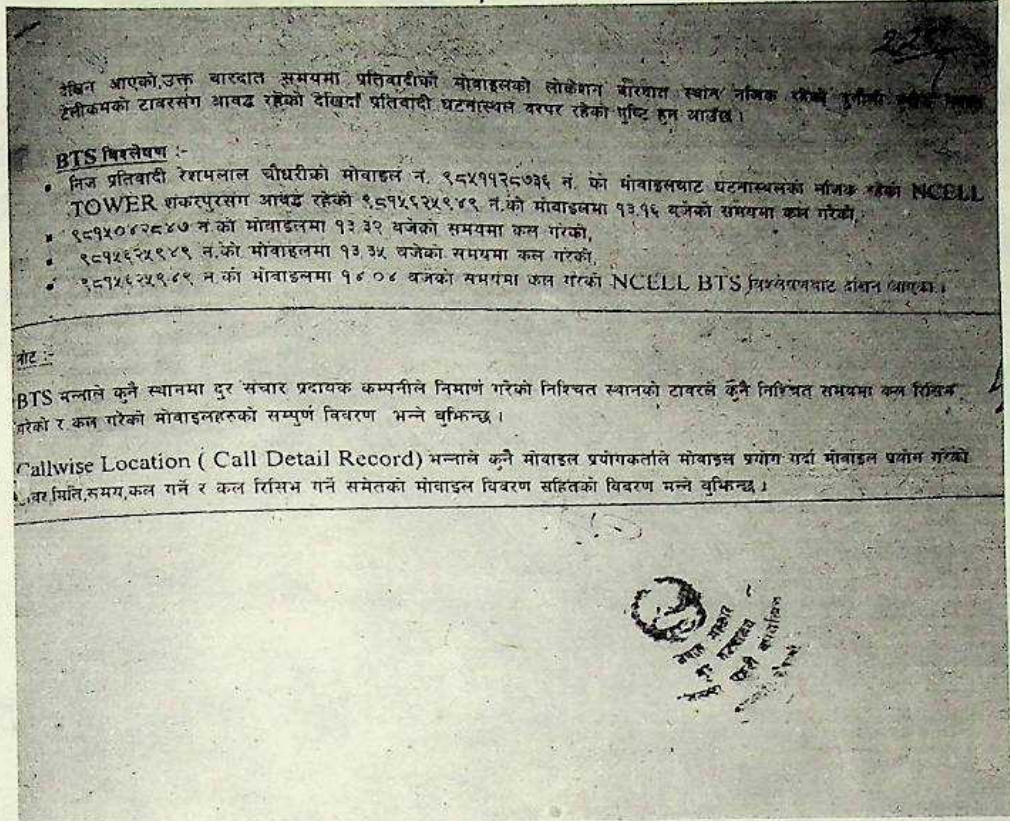 देखिन आएको,उक्त वारदात समयमा प्रतिवादीको मोवाइलको लोकेशन वारदात स्थान नजिक रहेको
टेलीकमको टावरसंग आवद्ध रहेको देखिंदा प्रतिवादी घटनास्थल वरपर रहेको पुष्टि हुन आउँछ ।
BTS विश्लेषण :-
• निज प्रतिवादी रेशमलाल चौधरीको मोवाइल नं. ९८५११२८७३६ नं. को मोवाइलवाट घटनास्थलको नजिक रहेको NCELL
TOWER शंकरपुरसंग आवद्ध रहेको ९८१५६२५९४९ नं.को मोवाइलमा १३.१६ वजेको समयमा कल गरेको,
• ९८१५०४२८४७ नं.को मोवाइलमा १३.३२ वजेको समयमा कल गरेको,
• ९८१५६२५९४९ नं.को मोवाइलमा १३.३५ वजेको समयमा कल गरेको,
• ९८१५६२५९४९ नं.को मोवाइलमा १४.०४ वजेको समयमा कल गरेको NCELL BTS विश्लेषणवाट देखिन आएको ।
नोट :-
BTS भन्नाले कुनै स्थानमा दुर संचार प्रदायक कम्पनीले निमार्ण गरेको निश्चित स्थानको टावरले कुनै निश्चित समयमा कल रिसिभ
गरेको र कल गरेको मोवाइलहरुको सम्पुर्ण विवरण भन्ने वुझिन्छ ।
Callwise Location ( Call Detail Record) भन्नाले कुनै मोवाइल प्रयोगकर्ताले मोवाइल प्रयोग गर्दा मोवाइल प्रयोग गरेको
मिति,समय,कल गर्ने र कल रिसिभ गर्ने समेतको मोवाइल विवरण सहितको विवरण भन्ने वुझिन्छ ।
नेपाल सरकार
गृह मन्त्रालय